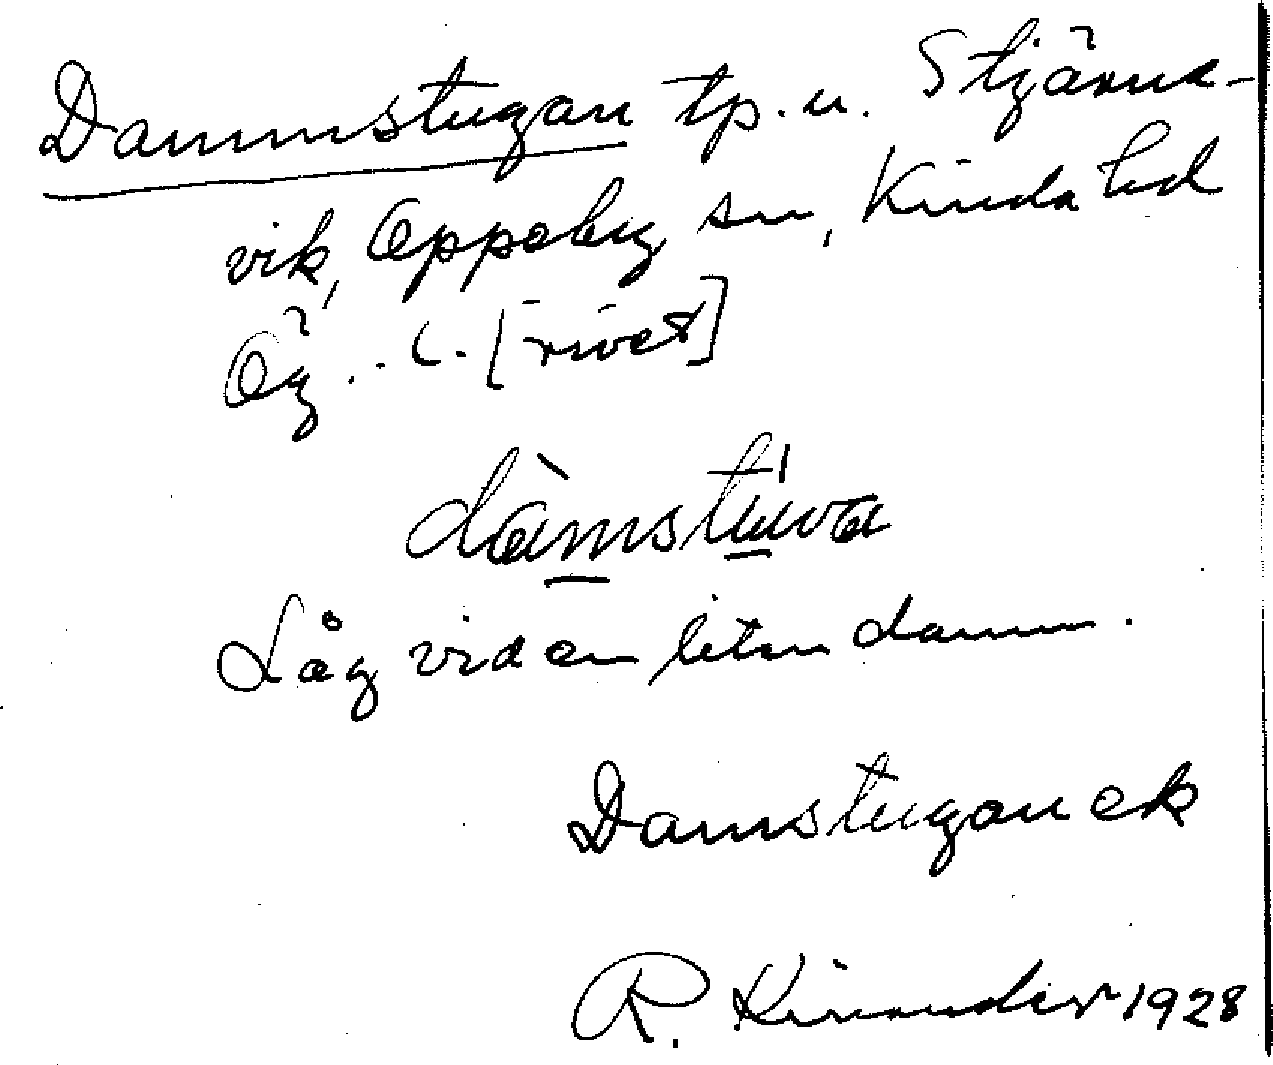 Dammstugan tp. u. Stjärne-
vik, Oppeby sn, Kinda hd
Ög. . L. [rivet]
dàmstúwa
Låg vid en liten damm.
Damstugan ek
R. Kinander 1928